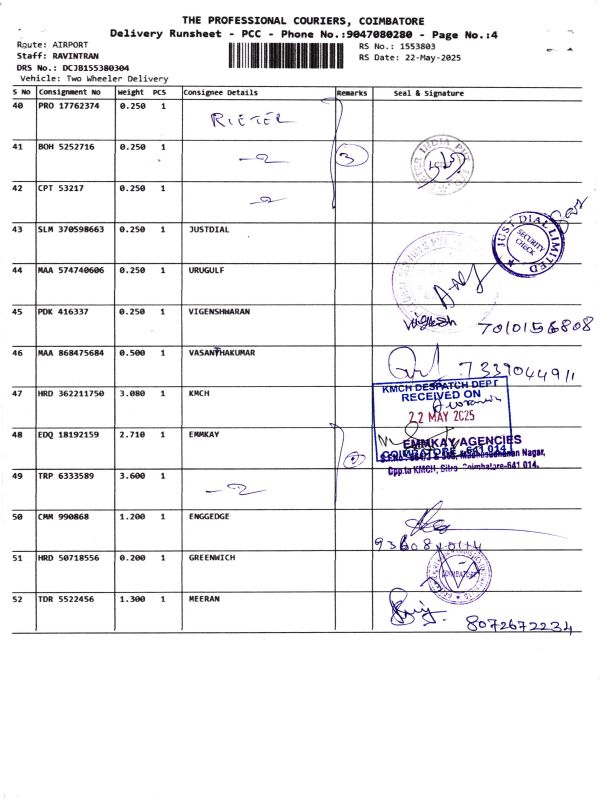 THE PROFESSIONAL COURIERS, COIMBATORE
Delivery Runsheet - PCC - Phone No.:9047080280 - Page No.:4
Route: AIRPORT
RS No.: 1553803
Staff: RAVINTRAN
RS Date: 22-May-2025
DRS No.: DCJB155380304
Vehicle: Two Wheeler Delivery
S No Consignment No Weight PCS Consignee Details Remarks Seal & Signature
40 PRO 17762374 0.250 1 RIETER
41 BOH 5252716 0.250 1 3
42 CPT 53217 0.250 1
43 SLM 370598663 0.250 1 JUSTDIAL
JUST DIAL LIMITED
SECURITY CHECK
44 MAA 574740606 0.250 1 URUGULF
45 PDK 416337 0.250 1 VIGENSHWARAN
Vignesh 7010156808
46 MAA 868475684 0.500 1 VASANTHAKUMAR
7339044911
47 HRD 362211750 3.080 1 KMCH
KMCH DESPATCH DEPT
RECEIVED ON
22 MAY 2025
COIMBATORE - 641 014
48 EDQ 18192159 2.710 1 EMMKAY
EMMKAY AGENCIES
Madhusudhanan Nagar,
Opp.to KMCH, Sitra Coimbatore-641 014.
49 TRP 6333589 3.600 1
50 CMM 990868 1.200 1 ENGGEDGE
51 HRD 50718556 0.200 1 GREENWICH
COIMBATORE
52 TDR 5522456 1.300 1 MEERAN
8072672234